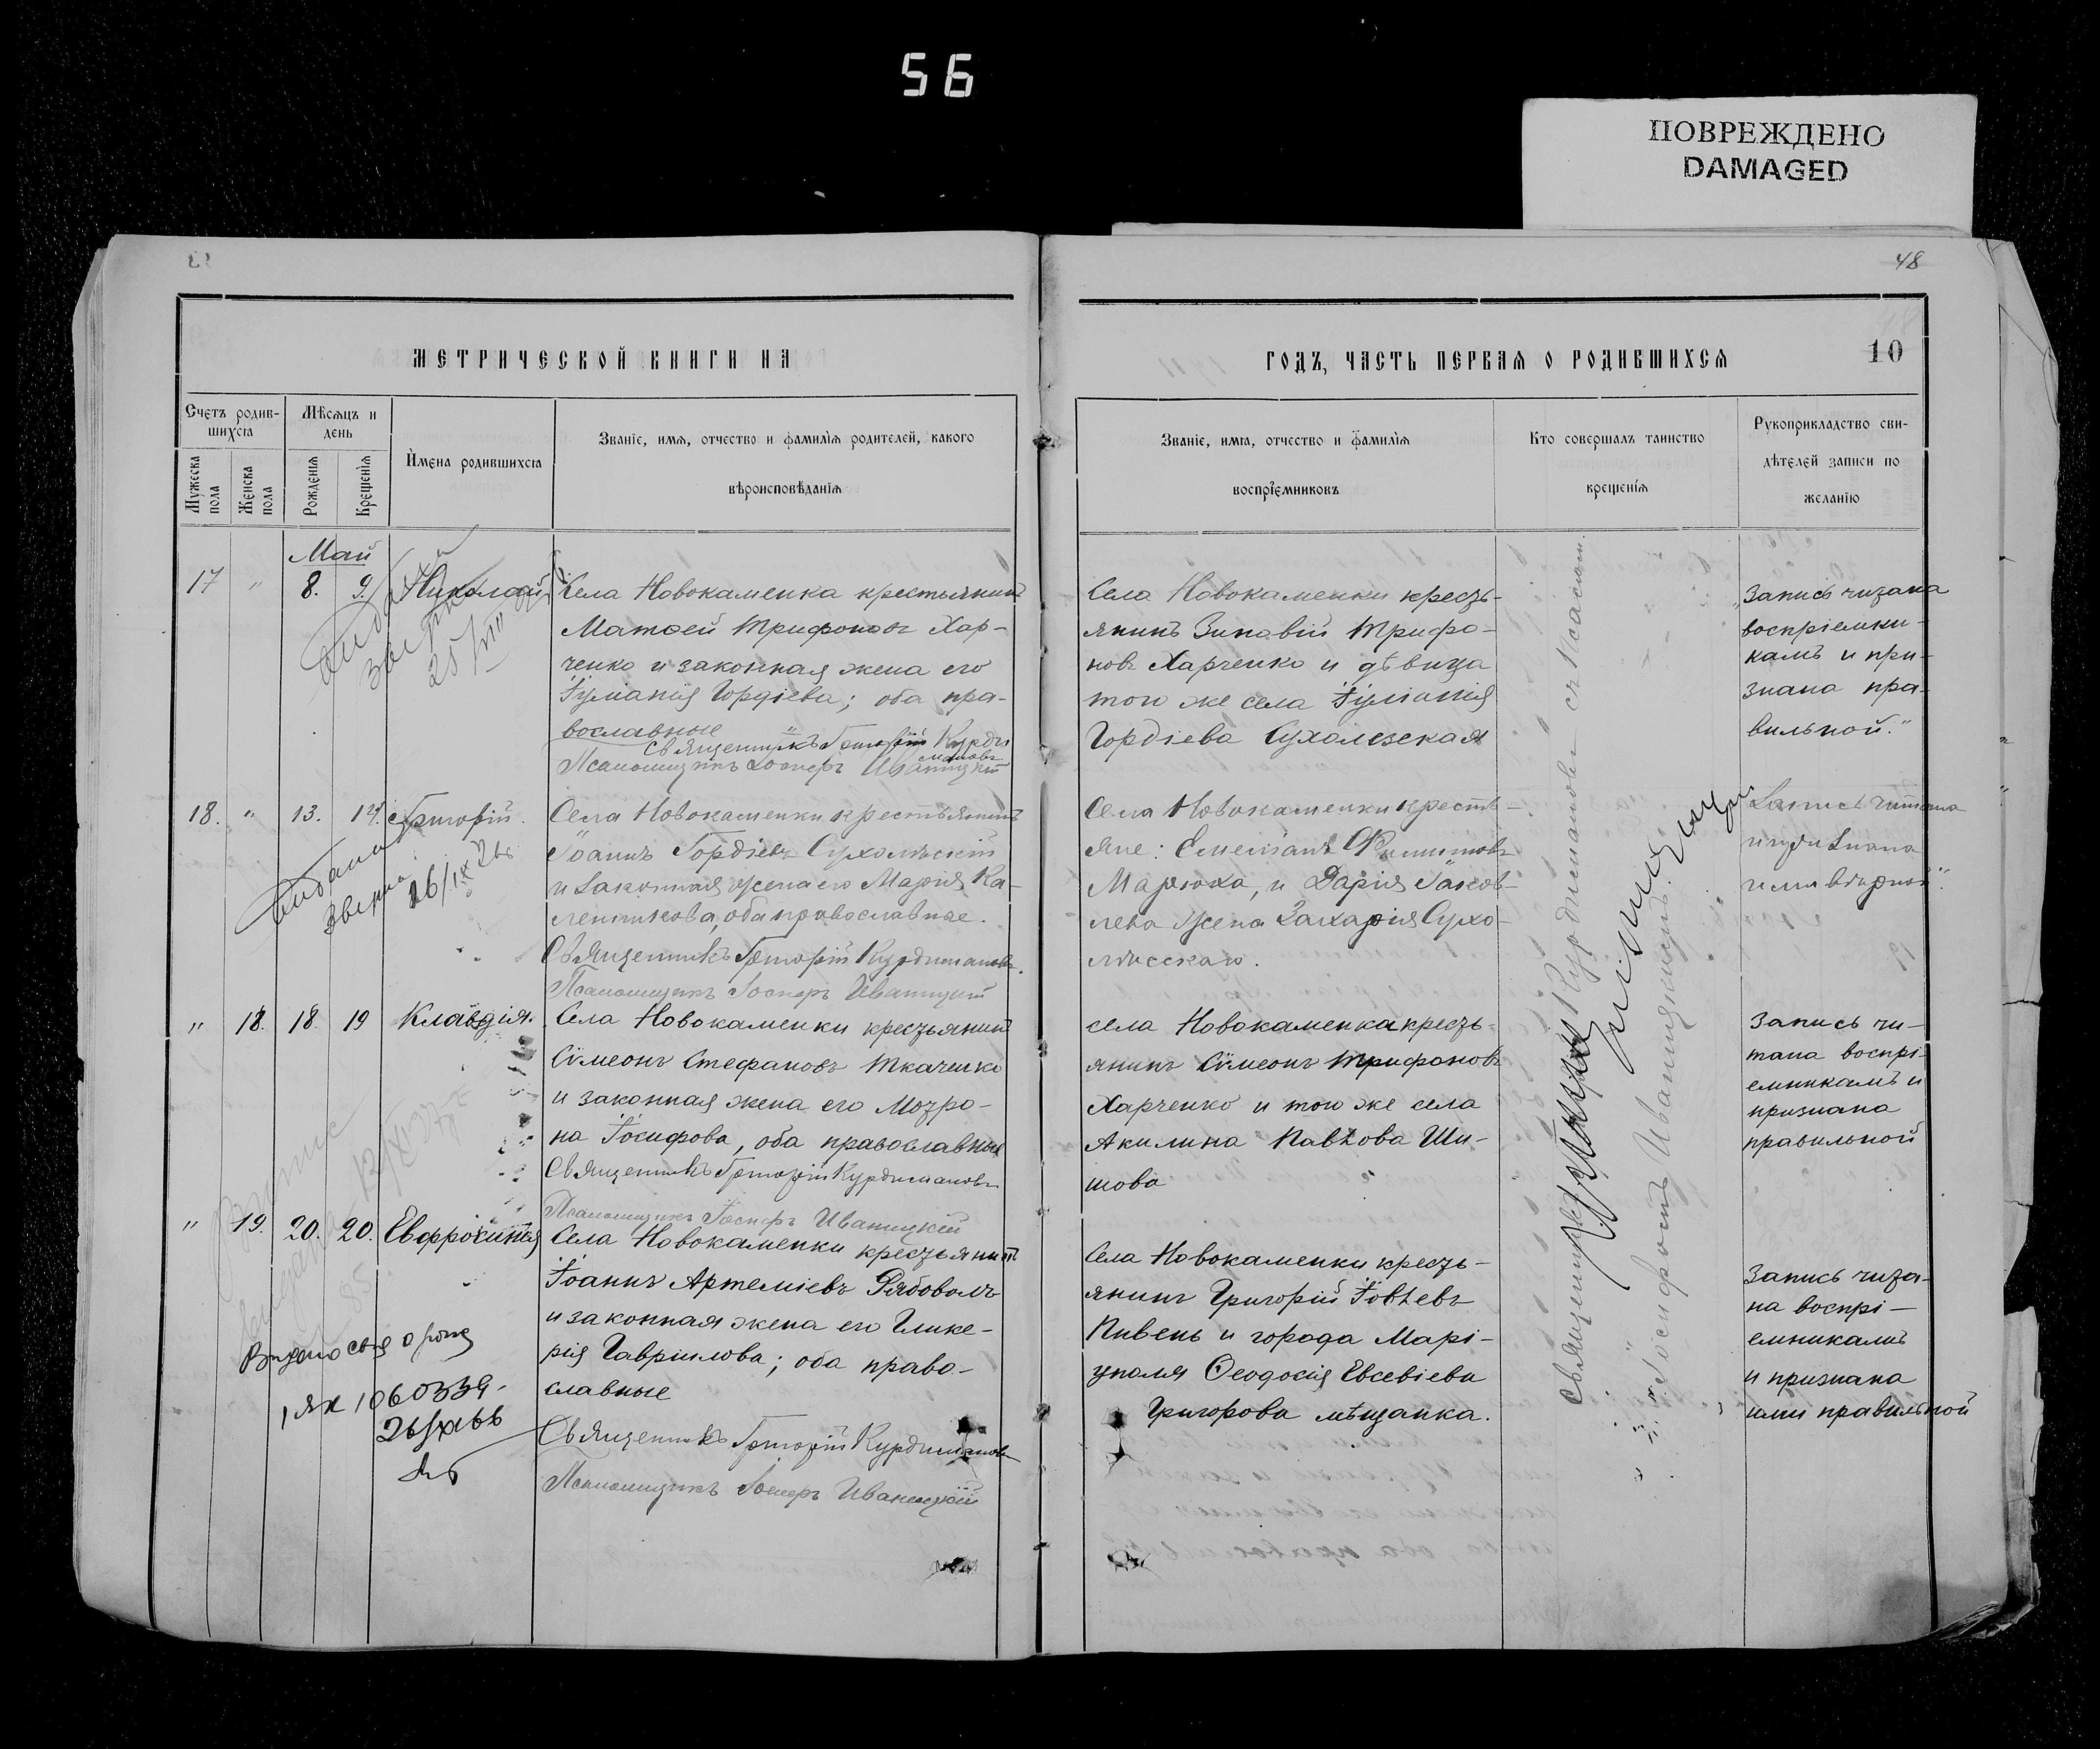 56
ПОВРЕЖДЕНО
DAMAGED
48
МЕТРИЧЕСКОЙ КНИГИ НА
ГОДЪ, ЧАСТЬ ПЕРВАЯ О РОДИВШИХСЯ
10
Счетъ родив-
шихся
Мужеска пола
Женска пола
Мѣсяцъ и
день
Рожденія
Крещенія
Имена родившихся
Званіе, имя, отчество и фамилія родителей, какого
вѣроисповѣданія
Званіе, имя, отчество и фамилія
воспріемниковъ
Кто совершалъ таинство
крещенія
Рукоприкладство сви-
дѣтелей записи по
желанію
Май
17 " 8. 9. Николай
Села Новокаменка крестьянинъ
Матѳей Трифоновъ Хар-
ченко и законная жена его
Іуліанія Гордіева; оба пра-
вославные
Священникъ Григорій Курди
мановъ
Псаломщикъ Іосифъ Иваницкій
Села Новокаменки кресть-
янинъ Зиновій Трифо-
новъ Харченко и дѣвица
того же села Іуліанія
Гордіева Сухолеская
"Запись читана
воспріемни-
камъ и при-
знана пра-
вильной."
18. " 13. 14. Григорій
26/IX
Села Новокаменки крестьянинъ
Іоаннъ Гордіевъ Сухолѣскій
и законная жена его Марія Ка-
ленникова, оба православные.
Священникъ Григорій Курдимановъ.
Псаломщикъ Іосифъ Иваницкій
Села Новокаменки кресть-
яне: Емеліанъ Филиповъ
Марюха, и Дарія Іаков-
лева жена Захарія Сухо-
лѣсскаго.
Запись читана
" 18. 18. 19 Клавдія.
Села Новокаменки крестьянинъ
Сѵмеонъ Стефановъ Ткаченко
и законная жена его Матро-
на Іосифова, оба православные
Священникъ Григорій Курдимановъ
Псаломщикъ Іосифъ Иваницкій
села Новокаменка кресть-
янинъ Сѵмеонъ Трифоновъ
Харченко и того же села
Акилина Павлова Ши-
шова
Запись чи-
тана воспрі-
емникамъ и
признана
правильной
" 19. 20. 20. Евфросинія
1060339
Села Новокаменки крестьянинъ
Іоаннъ Артеміевъ Рябоволъ
и законная жена его Глике-
рія Гавріилова; оба право-
славные
Священникъ Григорій Курдимановъ
Псаломщикъ Іосифъ Иваницкій
Села Новокаменки кресть-
янинъ Григорій Іовлевъ
Пивень и города Марі-
уполя Ѳеодосія Евсевіева
Григорова мѣщанка.
Запись чита-
на воспрі-
емникамъ
и признана
ими правильной
Священникъ Григорій Курдимановъ съ псаломщ.
Іосифомъ Иваницкимъ.